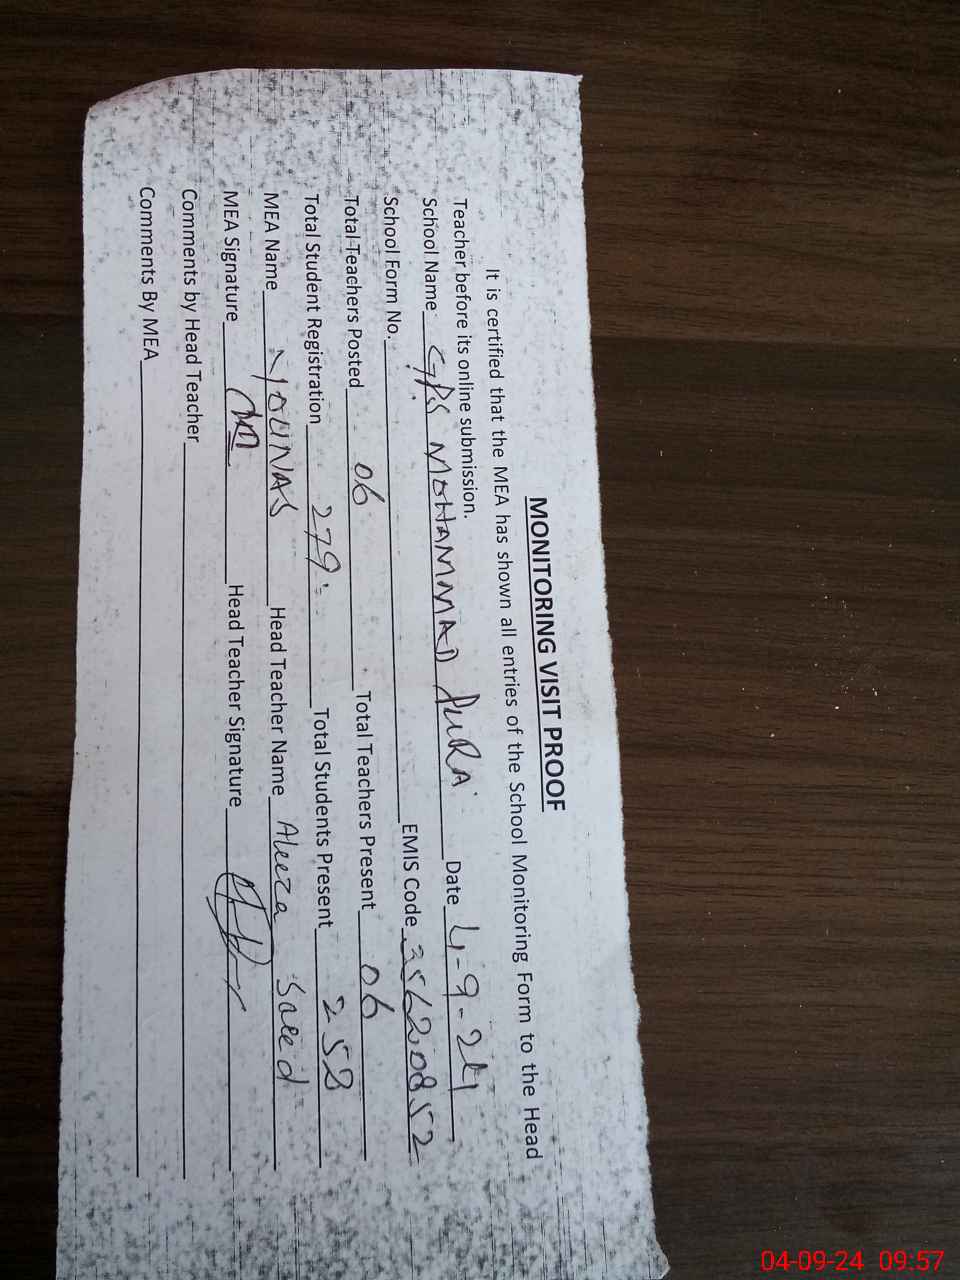 MONITORING VISIT PROOF
It is certified that the MEA has shown all entries of the School Monitoring Form to the Head
Teacher before its online submission.
School Name GPS MOHAMMAD PURA Date 4-9-24
School Form No. EMIS Code 35620852
Total Teachers Posted 06 Total Teachers Present 06
Total Student Registration 279 Total Students Present 258
MEA Name YOUNAS Head Teacher Name Aleeza Saeed
MEA Signature Head Teacher Signature
Comments by Head Teacher
Comments By MEA
04-09-24 09:57